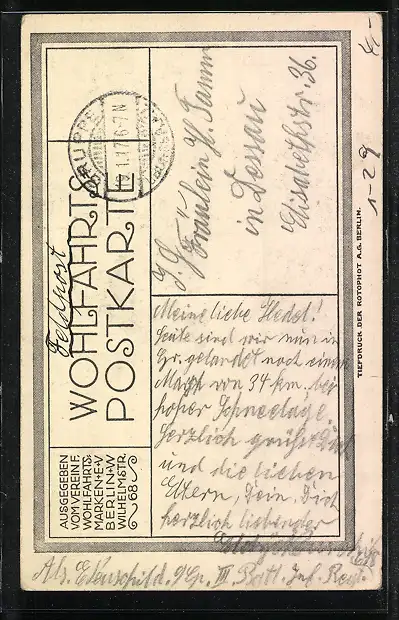 Feldpost
WOHLFAHRTS
POSTKARTE
AUSGEGEBEN
VOM VEREIN F.
WOHLFAHRTS-
MARKEN·E·V
BERLIN·W
WILHELMSTR.
68
Fräulein H. Tamm
in Dessau
Elisabethstr. 36.
Meine liebe Hedel!
Heute sind wir nun in
Gr. gelandet nach einem
von 34 km. bei
hoher Schneelage.
Herzlich grüßt Dich
und die lieben
Eltern, Dein, Dich
herzlich liebender
Abs. III. Batl. Inf. Regt.
1-29
TIEFDRUCK DER ROTOPHOT A.G. BERLIN.